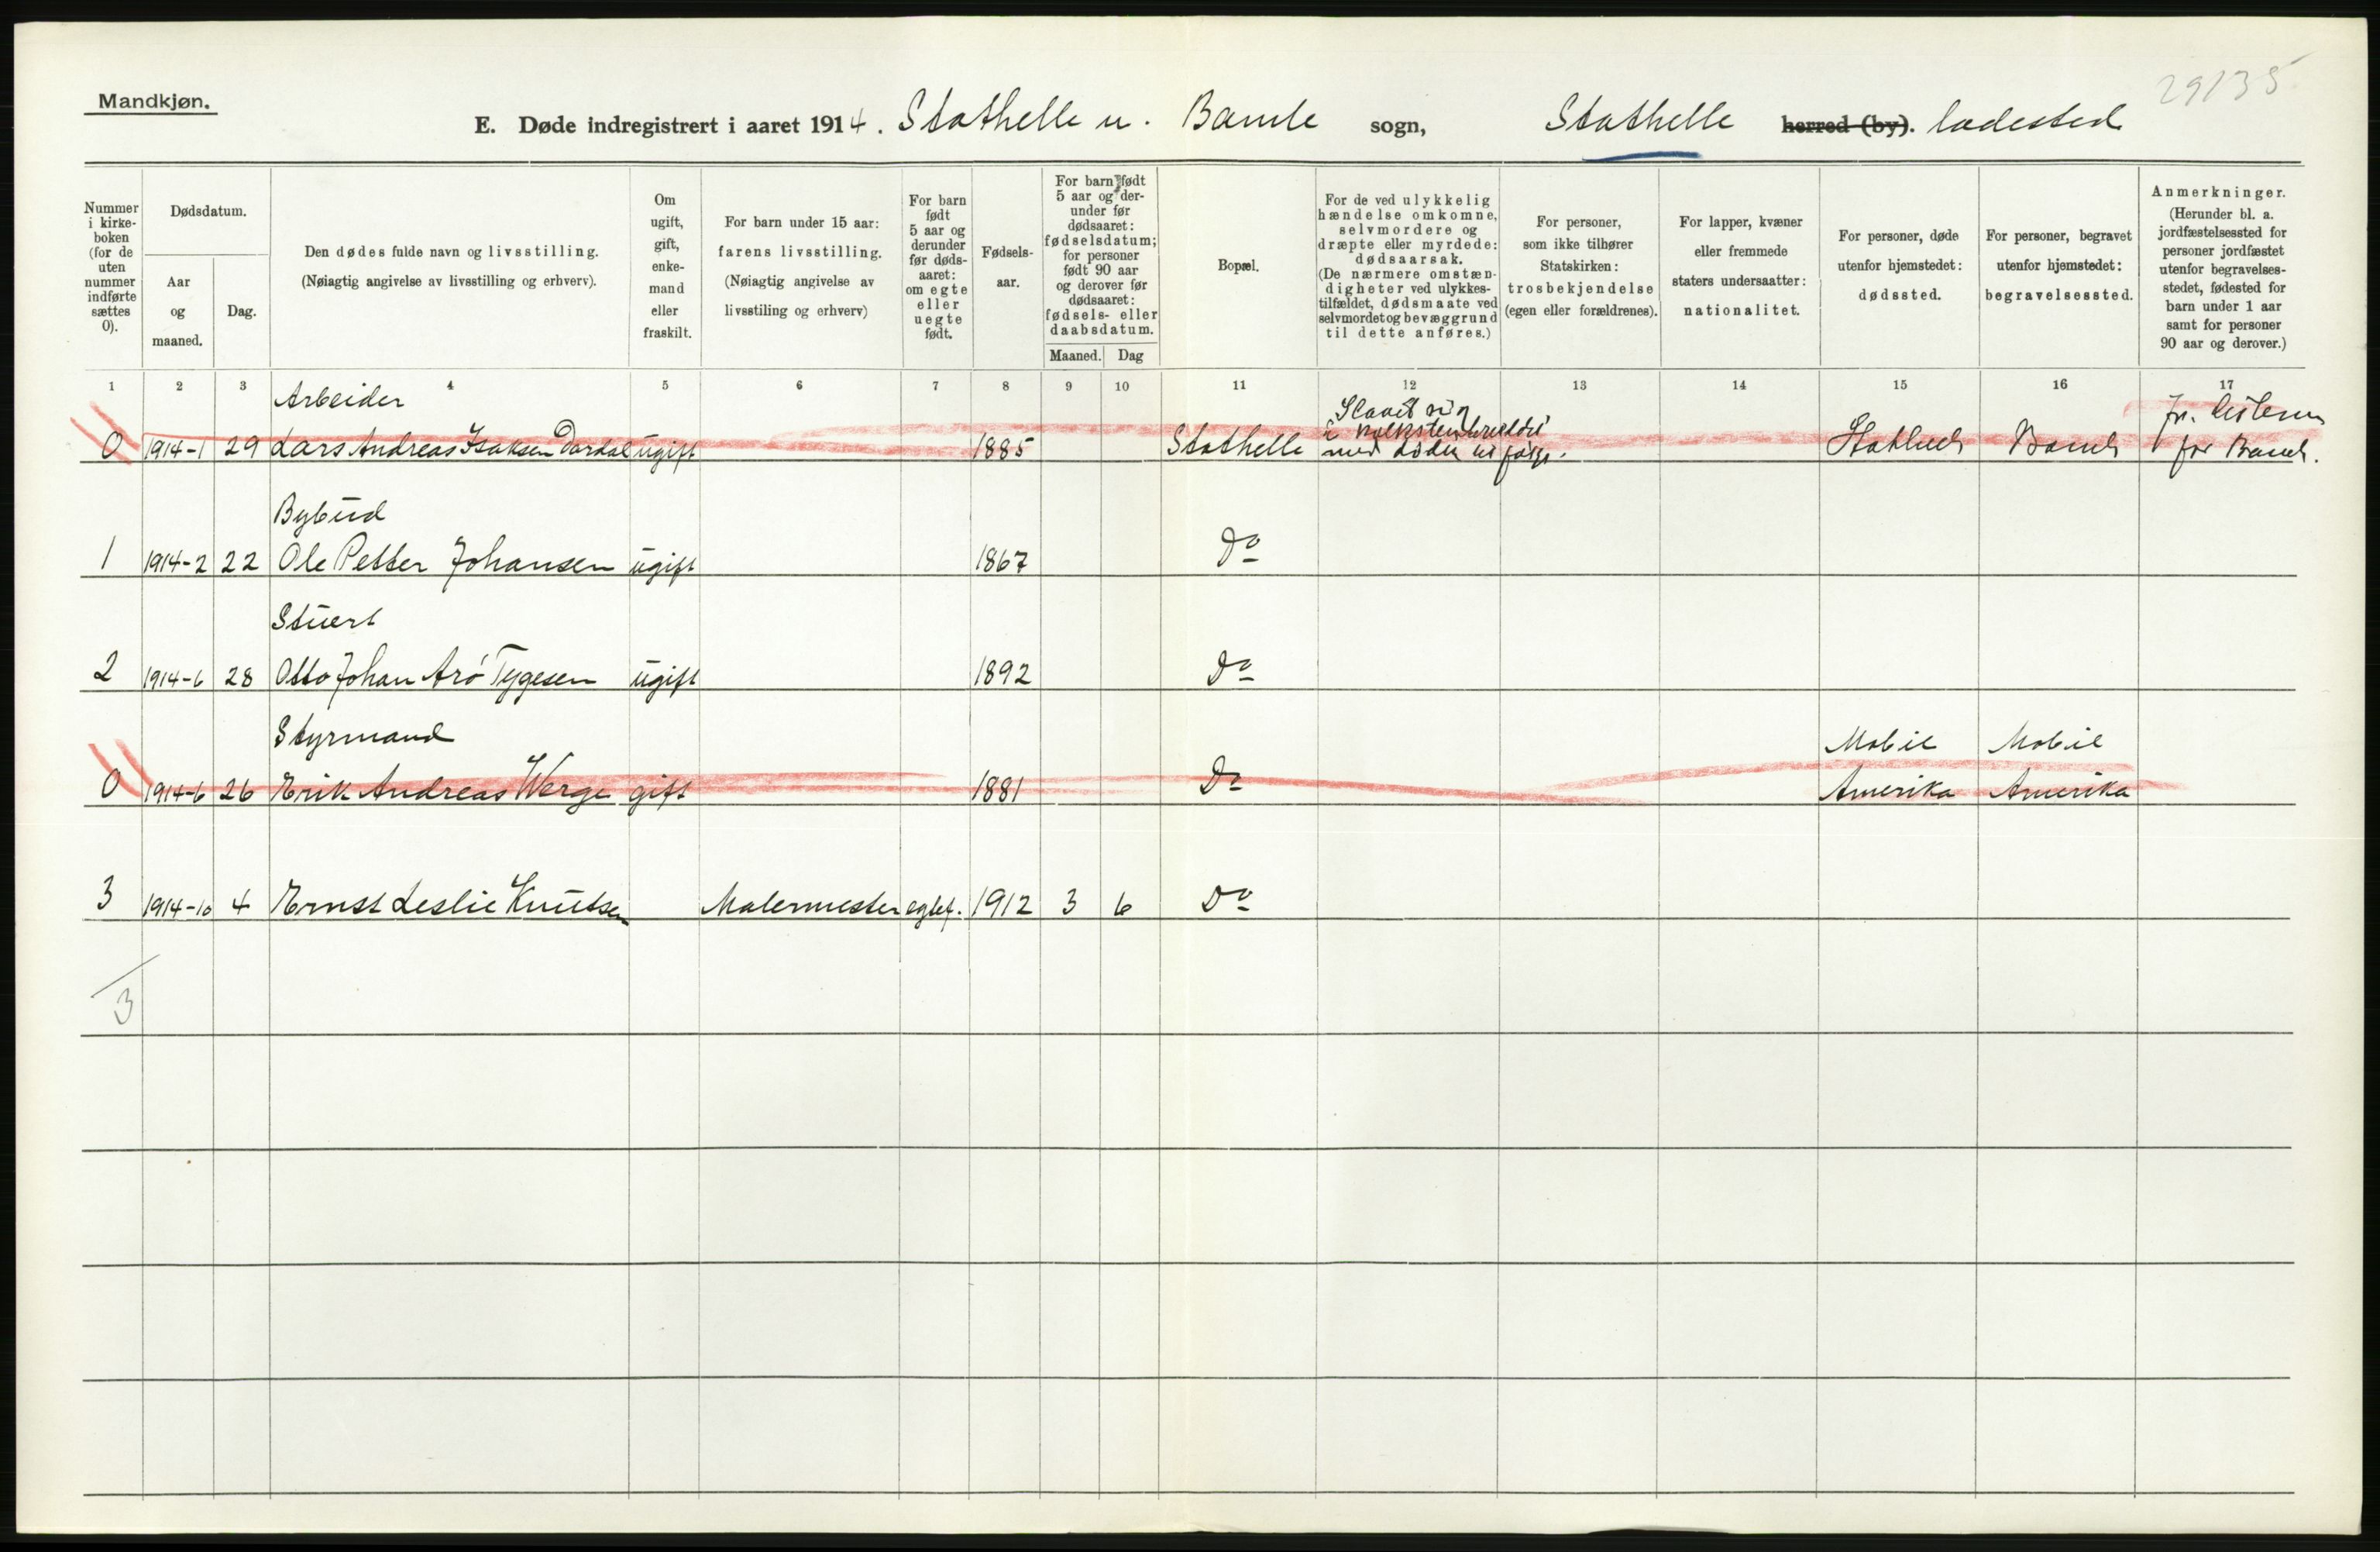 Mandkjøn.
29135
E. Døde indregistrert i aaret 1914. Stathelle u. Bamle sogn, Stathelle herred (by). ladested
Nummer i kirkeboken (for de uten nummer indførte sættes 0).
Dødsdatum.
Aar og maaned.
Dag.
Den dødes fulde navn og livsstilling.
(Nøiagtig angivelse av livsstilling og erhverv).
Om ugift, gift, enkemand eller fraskilt.
For barn under 15 aar: farens livsstilling.
(Nøiagtig angivelse av livsstiling og erhverv)
For barn født 5 aar og derunder før dødsaaret: om egte eller uegte født.
Fødselsaar.
For barn født 5 aar og derunder før dødsaaret: fødselsdatum; for personer født 90 aar og derover før dødsaaret: fødsels- eller daabsdatum.
Maaned. Dag
Bopæl.
For de ved ulykkelig hændelse omkomne, selvmordere og dræpte eller myrdede: dødsaarsak.
(De nærmere omstændigheter ved ulykkestilfældet, dødsmaate ved selvmordet og bevæggrund til dette anføres.)
For personer, som ikke tilhører Statskirken: trosbekjendelse (egen eller forældrenes).
For lapper, kvæner eller fremmede staters undersaatter: nationalitet.
For personer, døde utenfor hjemstedet: dødssted.
For personer, begravet utenfor hjemstedet: begravelsessted.
Anmerkninger.
(Herunder bl. a. jordfæstelsessted for personer jordfæstet utenfor begravelsesstedet, fødested for barn under 1 aar samt for personer 90 aar og derover.)
1 2 3 4 5 6 7 8 9 10 11 12 13 14 15 16 17
Arbeider
0 1914-1 29 Lars Andreas Isaksen Dardal ugift 1885 Stathelle
Slaaet sig
i
med døden til følge.
Stathelle Bamle
for Bamle.
Bybud
1 1914-2 22 Ole Petter Johansen ugift 1867 Do
Stuert
2 1914-6 28 Otto Johan Arö Tygesen ugift 1892 Do
Styrmand Mobile Mobile
0 1914-6 26 Erik Andreas Werge gift 1881 Do Amerika Amerika
3 1914-10 4 Ernst Leslie Knutsen Malermester egtef. 1912 3 6 Do
3